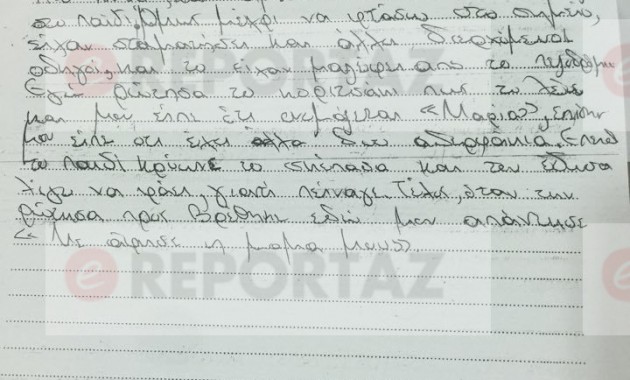 στο παιδί. Όμως μέχρι να φτάσω στο σημείο,
είχαν σταματήσει και άλλοι διερχόμενοι
οδηγοί και το είχαν μαζέψει από το πεζοδρόμιο
Εγώ ρώτησα το κοριτσάκι πως το λένε
και μου είπε ότι ονομάζεται «Μαρία», επίσης
μου είπε ότι έχει άλλα δυο αδερφάκια. Επειδή
το παιδί κρύωνε το σκέπασα και του έδωσα
λίγο να φάει, γιατί πείναγε. Τέλος, όταν την
ρώτησα πως βρέθηκε εδώ μου απάντησε
« Με άφησε η μαμά μου»
e REPORTAZ
e REPORTAZ